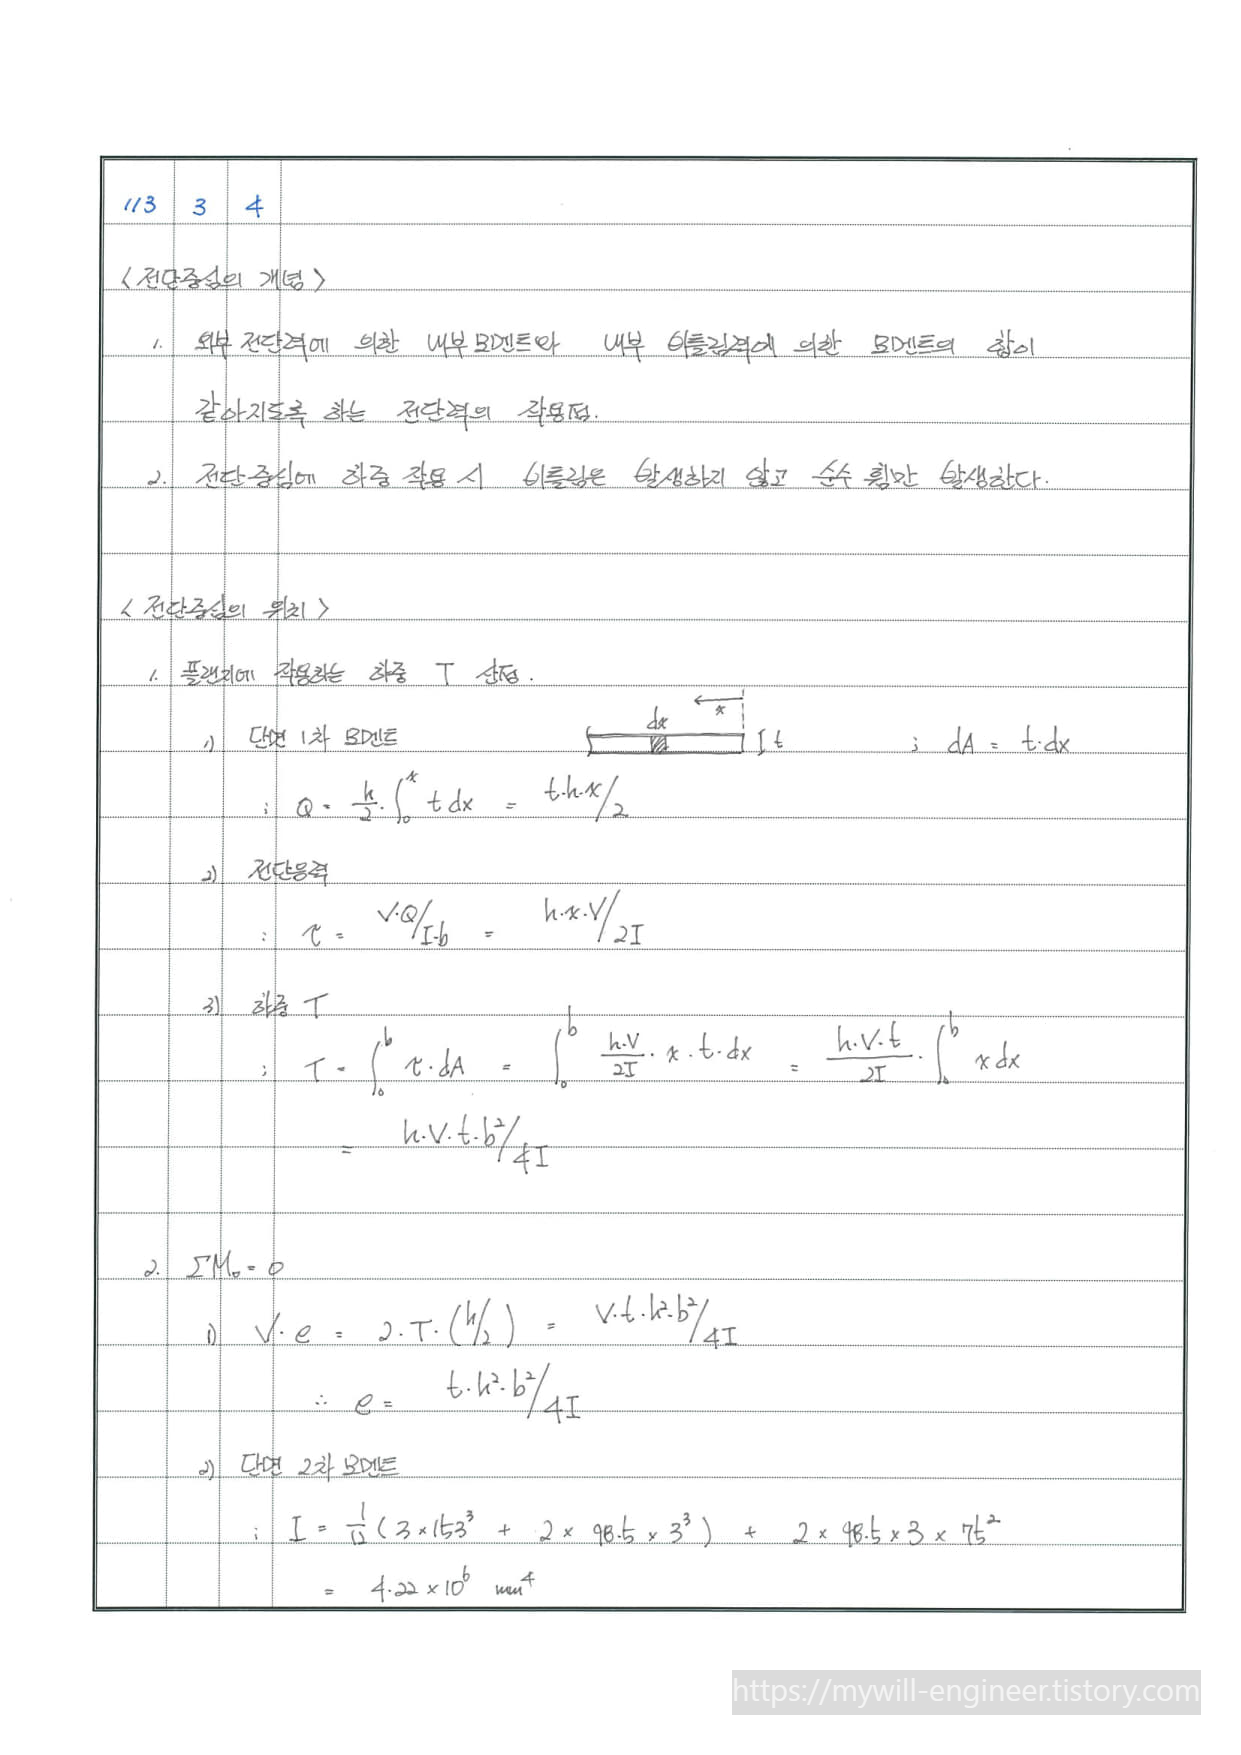 113 3 4
<전단중심의 개념>
1. 외부 전단력에 의한 내부 모멘트와 내부 비틀림력에 의한 모멘트의 합이
같아지도록 하는 전단력의 작용점.
2. 전단중심에 하중 작용 시 비틀림은 발생하지 않고 순수 휨만 발생한다.
<전단중심의 위치>
1. 플랜지에 작용하는 하중 T 산정.
1) 단면 1차 모멘트 dx x I t ; dA = t·dx
; Q = h/2 · ∫₀ˣ t dx = t·h·x/2
2) 전단응력
; τ = V·Q/I·b = h·x·V/2I
3) 하중 T
; T = ∫₀ᵇ τ·dA = ∫₀ᵇ h·V/2I · x·t·dx = h·V·t/2I · ∫₀ᵇ x dx
= h·V·t·b²/4I
2. ΣM₀ = 0
1) V·e = 2·T·(h/2) = V·t·h²·b²/4I
∴ e = t·h²·b²/4I
2) 단면 2차 모멘트
; I = 1/12 (3×153³ + 2 × 98.5 × 3³) + 2 × 98.5 × 3 × 75²
= 4.22×10⁶ mm⁴
https://mywill-engineer.tistory.com